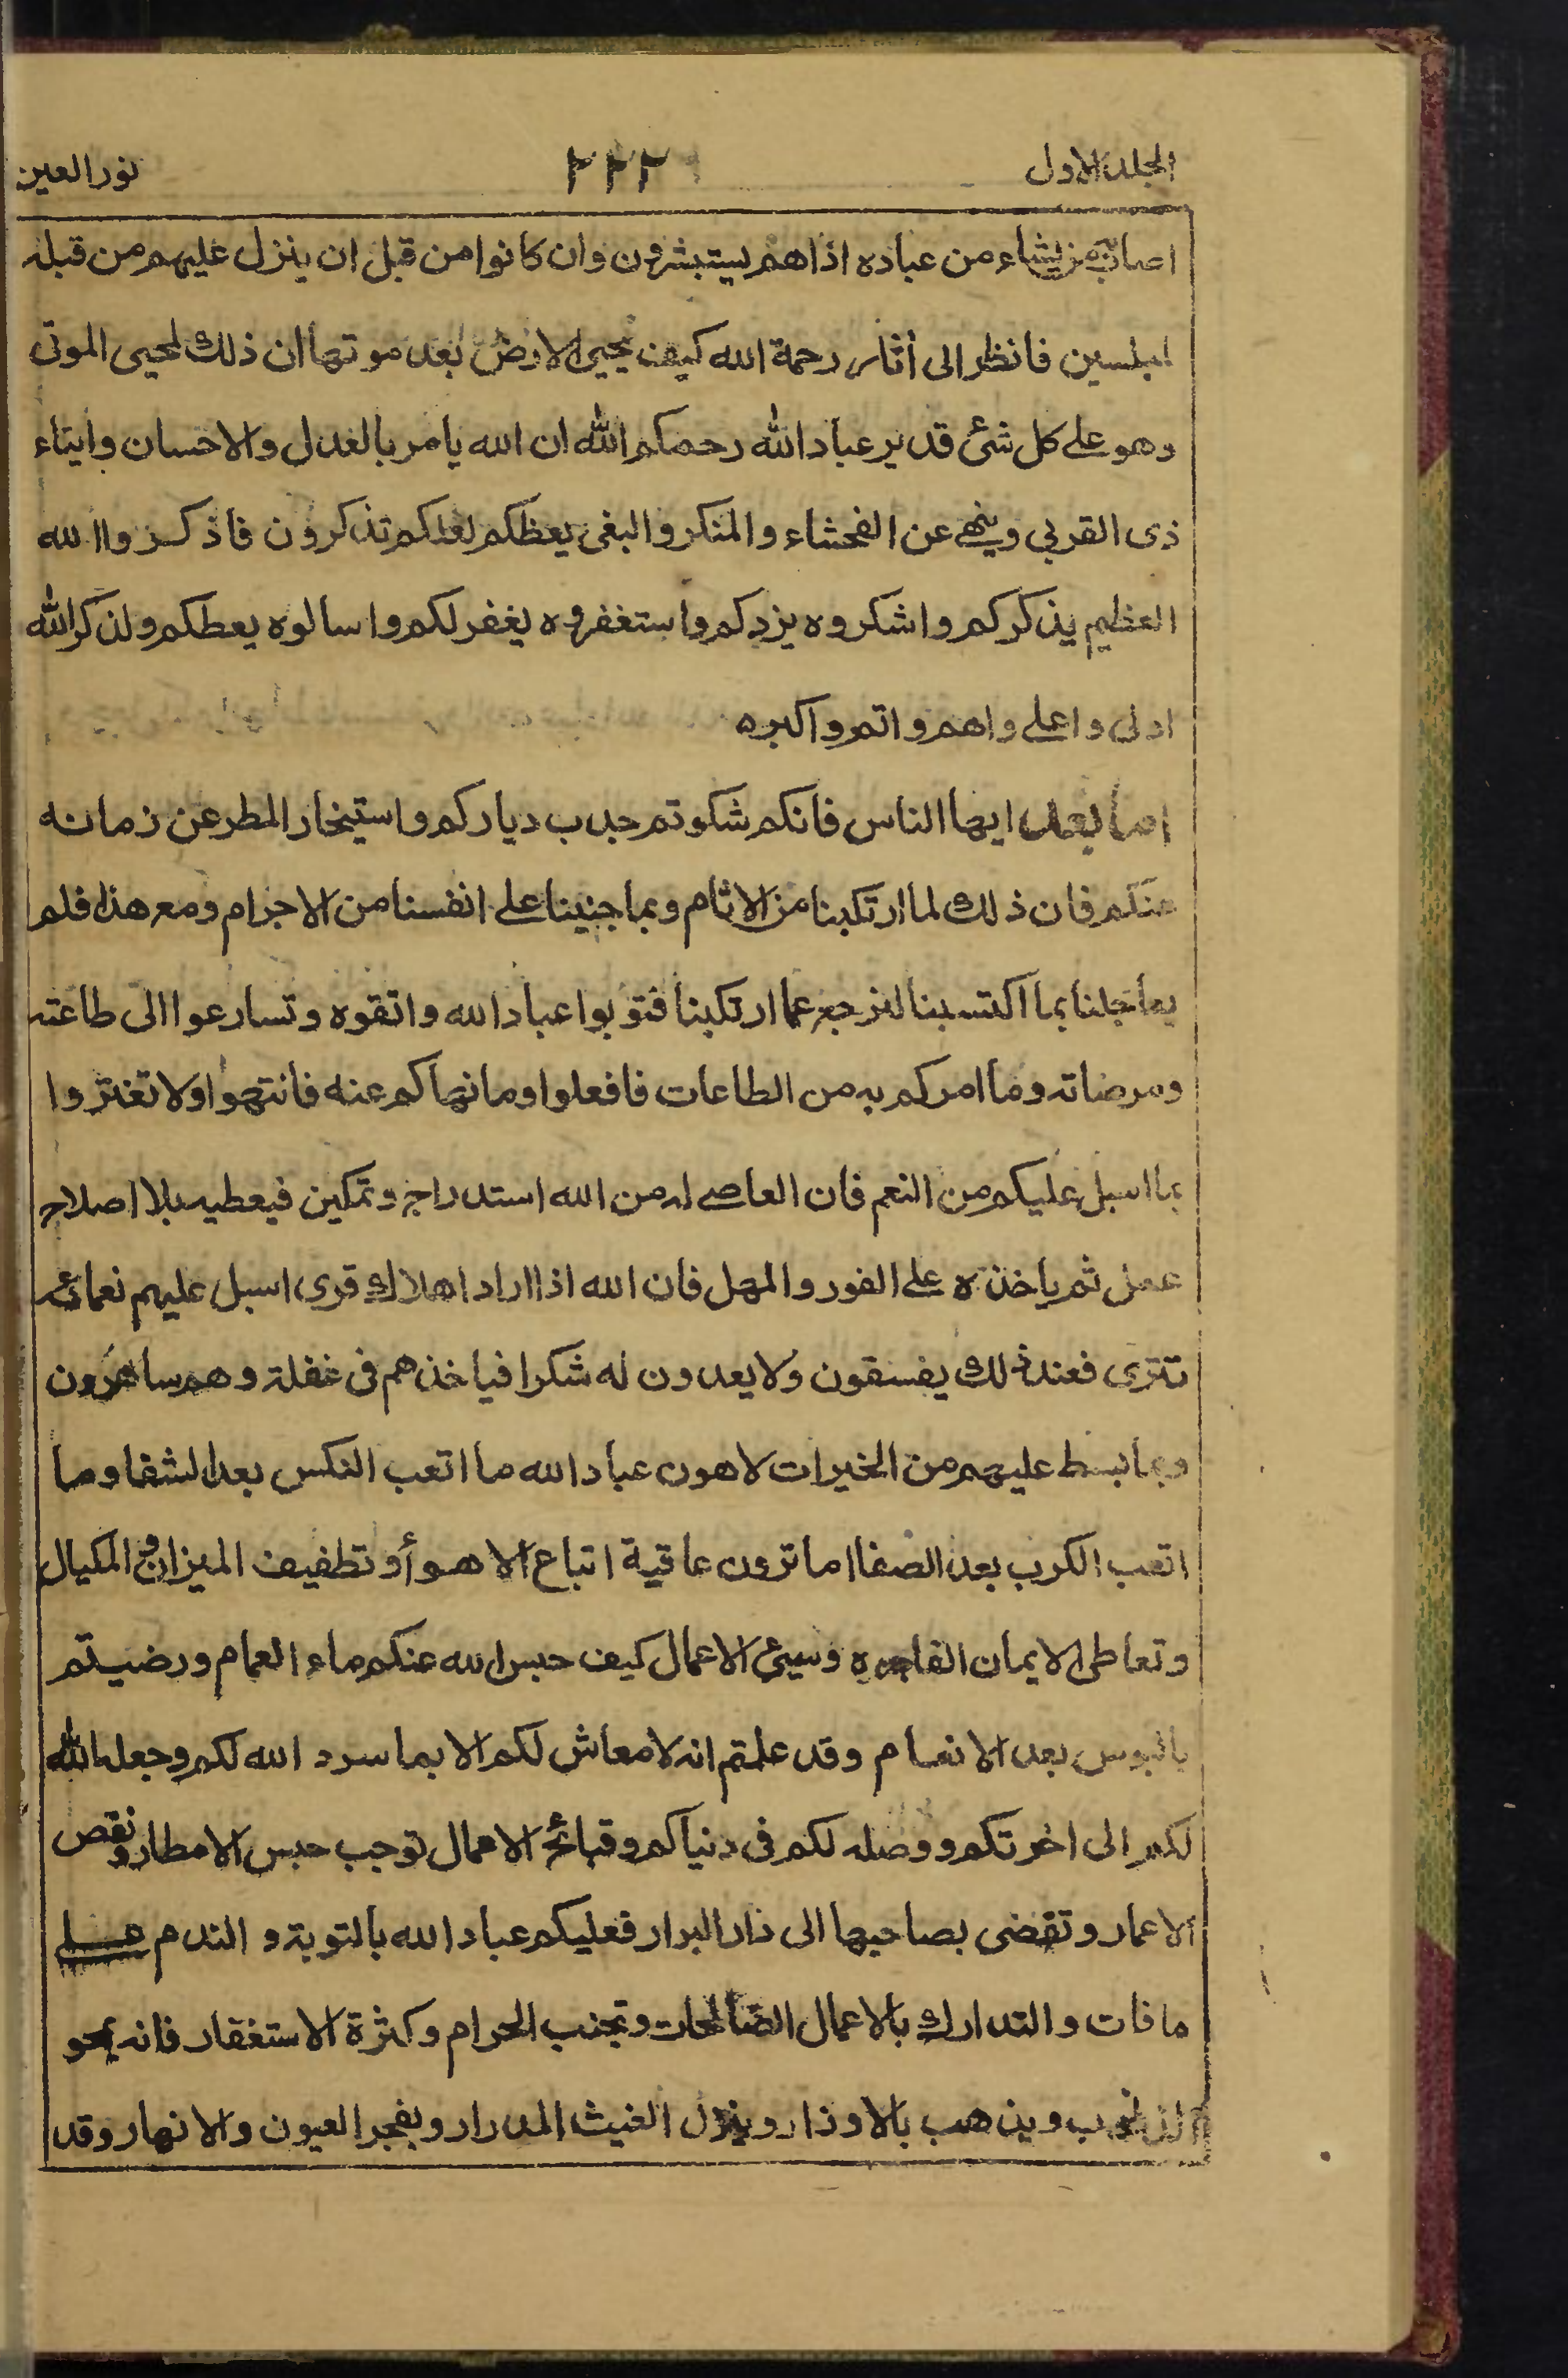 الجلد الاول ٢٢٢ نور العين
اصاب به من يشاء من عباده اذا هم يستبشرون وان كانوا من قبل ان ينزل عليهم من قبله
لمبلسين فانظر الى أثار رحمة الله كيف يحيى الارض بعد موتها ان ذلك لمحيى الموتى
وهو على كل شئ قدير عباد الله رحمكم الله ان الله يامر بالعدل والاحسان وايتاء
ذى القربى وينهى عن الفحشاء والمنكر والبغى يعظكم لعلكم تذكرون فاذكروا الله
العظيم يذكركم واشكروه يزدكم واستغفروه يغفر لكم واسالوه يعطكم ولذكر الله
اولى واعلى واهم واتم واكبره
اما بعد ايها الناس فانكم شكوتم جدب دياركم واستيخار المطر عن زمانه
عنكم فان ذلك لما ارتكبنا من الاثام وبما جنينا على انفسنا من الاجرام ومع هذا فلم
يعاجلنا بما اكتسبنا لنرجع عما ارتكبنا فتوبوا عباد الله واتقوه وتسارعوا الى طاعته
ومرضاته وما امركم به من الطاعات فافعلوا وما نهاكم عنه فانتهوا ولا تغتروا
بما اسبل عليكم من النعم فان العاصى له من الله استدراج وتمكين فيعطيه بلا اصلاح
عمل ثم ياخذه على الفور والمهل فان الله اذا اراد اهلاك قرى اسبل عليهم نعمائه
تترى فعند ذلك يفسقون ولا يعدون له شكرا فياخذهم فى غفلة وهم ساهرون
وبما بسط عليهم من الخيرات لاهون عباد الله ما اتعب النكس بعد الشفا وما
اتعب الكرب بعد الصفا اما ترون عاقية اتباع الاهوأ وتطفيف الميزان والمكيال
وتعاطى الايمان الفاجره وسيئ الاعمال كيف حبس الله عنكم ماء الغمام ورضيتم
بالبوس بعد الانعام وقد علمتم انه لا معاش لكم الا بما سرد الله لكم وجعله الله
لكم الى اخرتكم ووصله لكم فى دنياكم وقبائح الاعمال توجب حبس الامطار ونقص
الاعمار وتقضى بصاحبها الى دار البرار فعليكم عباد الله بالتوبة و الندم على
ما فات والتدارك بالاعمال الصالحات وتجنب الحرام وكثرة الاستغفار فانه يمحو
الذنوب ويذهب بالاوزار وينزل الغيث المدرار ويفجر العيون والانهار وقد